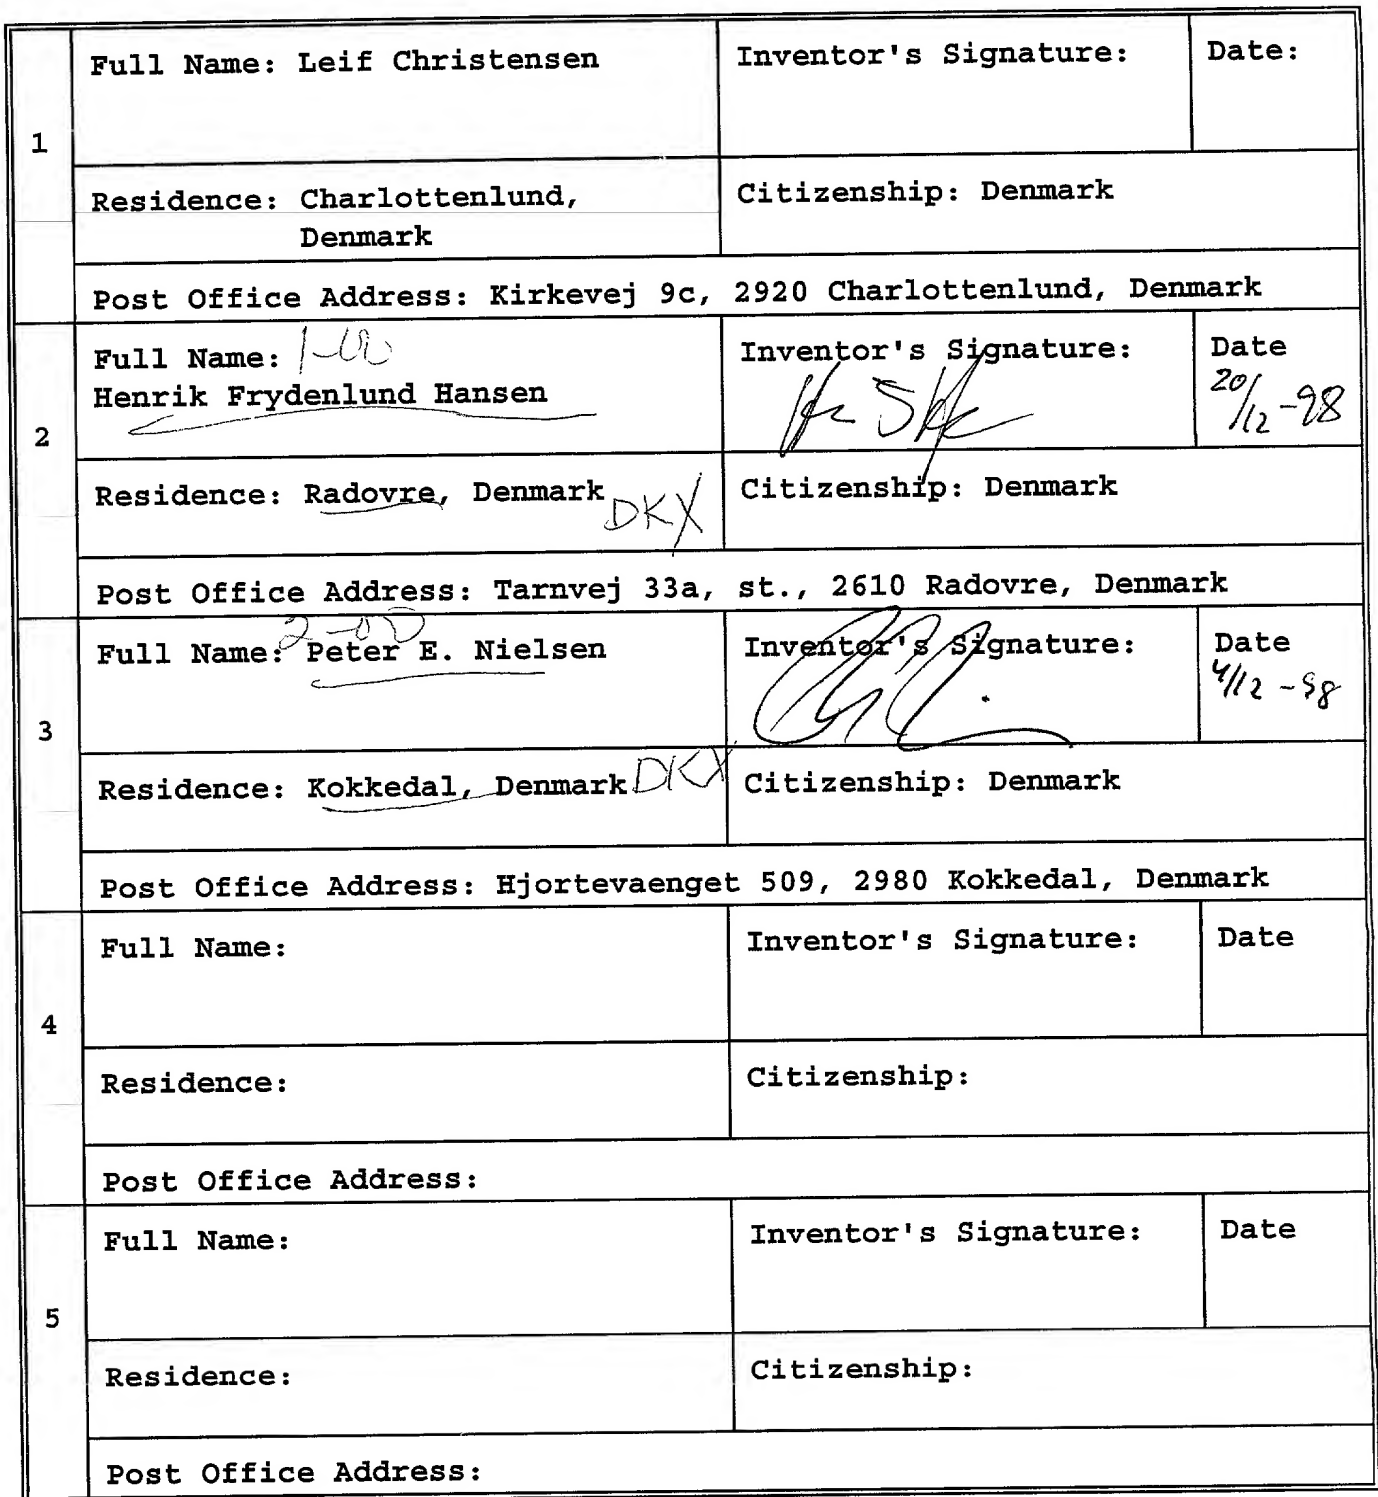 1
Full Name: Leif Christensen
Inventor's Signature:
Date:
Residence: Charlottenlund,
Denmark
Citizenship: Denmark
Post Office Address: Kirkevej 9c, 2920 Charlottenlund, Denmark
2
Full Name:
Henrik Frydenlund Hansen
Inventor's Signature:
Date
20/12-98
Residence: Radovre, Denmark DKX
Citizenship: Denmark
Post Office Address: Tarnvej 33a, st., 2610 Radovre, Denmark
3
Full Name: Peter E. Nielsen
Inventor's Signature:
Date
4/12-98
Residence: Kokkedal, Denmark DKX
Citizenship: Denmark
Post Office Address: Hjortevaenget 509, 2980 Kokkedal, Denmark
4
Full Name:
Inventor's Signature:
Date
Residence:
Citizenship:
Post Office Address:
5
Full Name:
Inventor's Signature:
Date
Residence:
Citizenship:
Post Office Address: